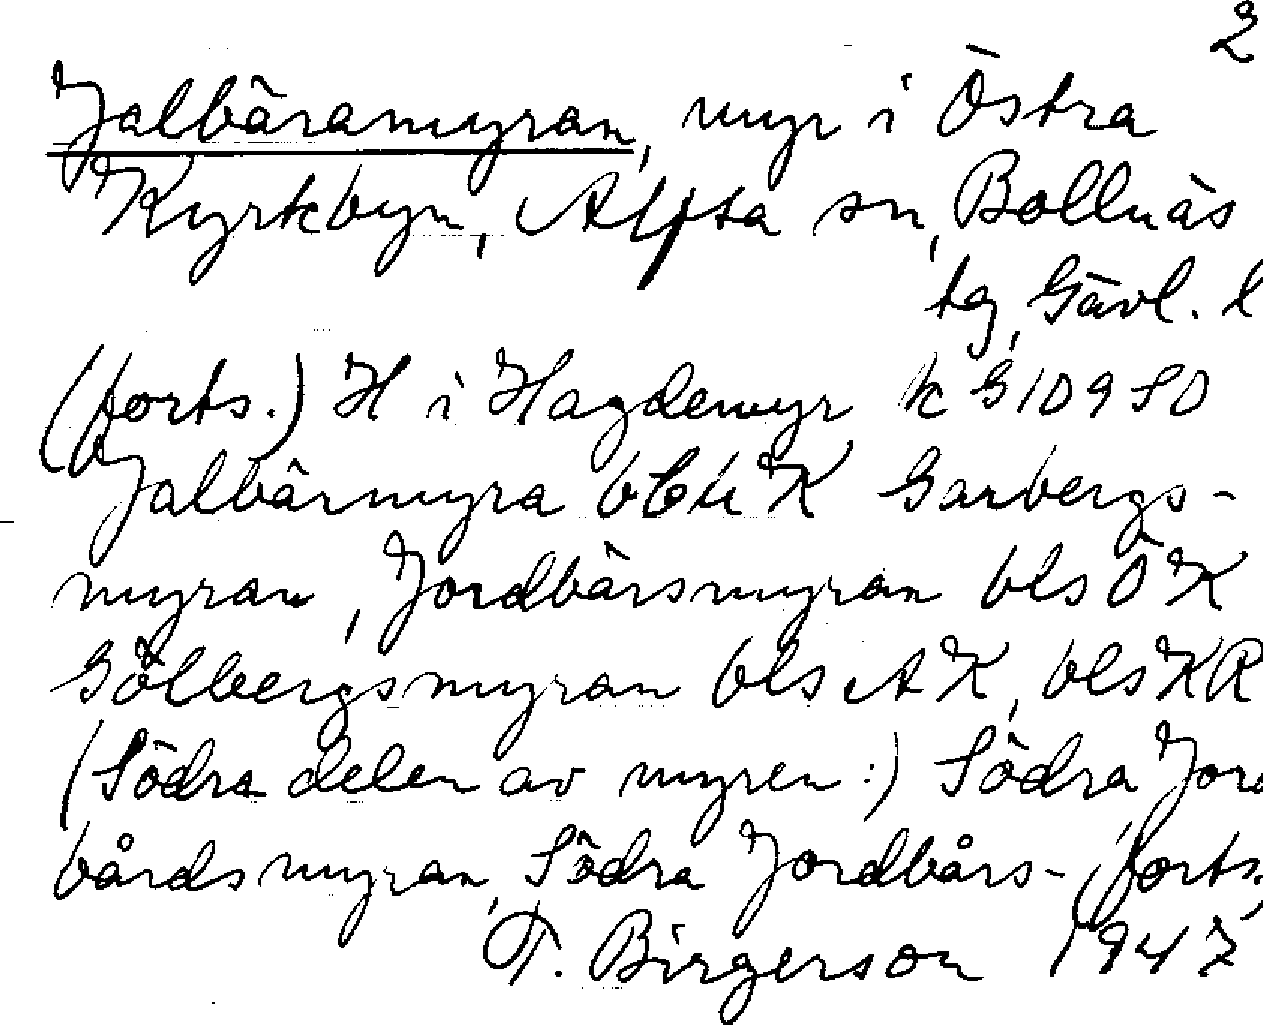 2
Jalbäramyran, myr i Östra
Kyrkbyn, Alfta sn, Bollnäs
tg, Gävl. l
(forts.) H i Hagdemyr k G 109 SO
Jalbärmyra bCU K Garbergs-
myran, Jordbärsmyran bls Ö K
Gölbergsmyran bls A K, bls KR
(Södra delen av myren:) Södra Jord
bårdsmyran, Södra Jordbårs- (forts.
T. Birgerson 1947